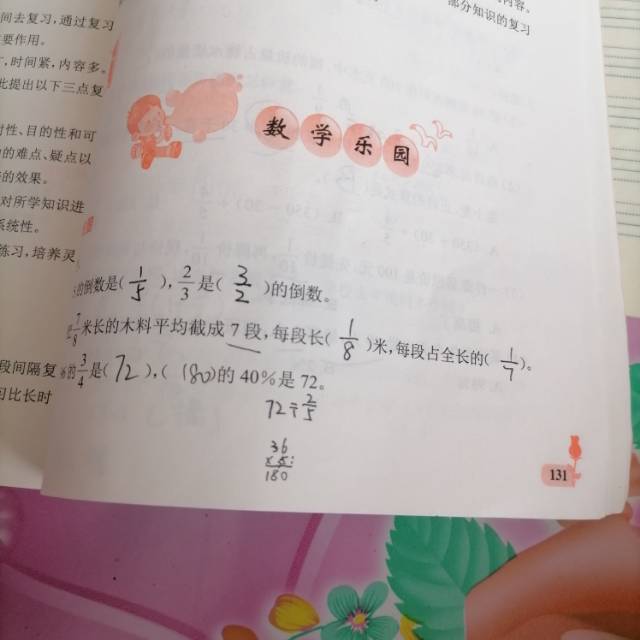 间去复习,通过复习
要作用。
,时间紧,内容多。
此提出以下三点复
性、目的性和可
的难点、疑点以
的效果。
对所学知识进
系统性。
练习,培养灵
段间隔复
比长时
内容。
部分知识的复习
数学乐园
的倒数是( 1/5 ), 2/3 是( 3/2 )的倒数。
把 7/8 米长的木料平均截成 7 段,每段长( 1/8 )米,每段占全长的( 1/7 )。
的 3/4 是( 72 ),( 180 )的 40%是 72。
72÷2/5
36
×5
180
131